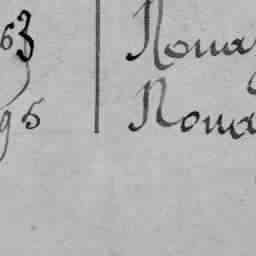 63 Roua
95 Roua